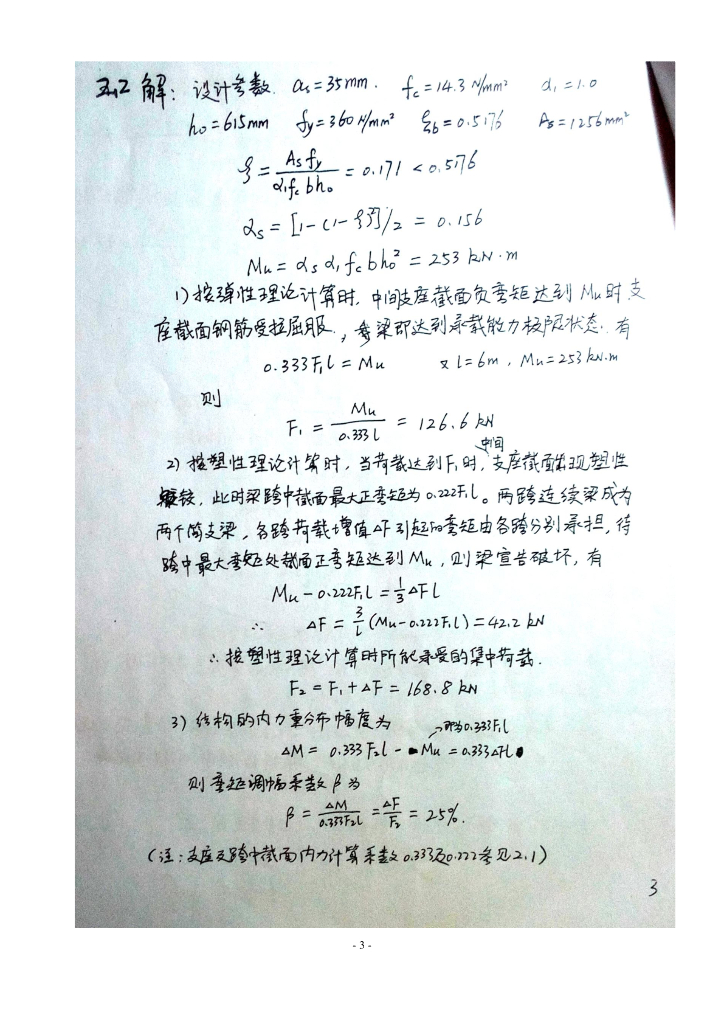 2.2 解：设计参数. as=35mm. fc=14.3 N/mm² α₁=1.0
h₀=615mm fy=360 N/mm² ξb=0.5176 As=1256mm²
ξ = As fy / α₁fc bh₀ = 0.171 < 0.5176
αs = [1-(1-ξ)²]/2 = 0.156
Mu = αs α₁ fc b h₀² = 253 kN·m
1) 按弹性理论计算时, 中间支座截面负弯矩达到 Mu 时 支
座截面钢筋受拉屈服, 梁即达到承载能力极限状态. 有
0.333F₁l = Mu 又 l=6m, Mu=253kN.m
则
F₁ = Mu / 0.333l = 126.6 kN
2) 按塑性理论计算时, 当荷载达到F₁时, 中间支座截面出现塑性
铰, 此时梁跨中截面最大正弯矩为 0.222F₁l。两跨连续梁成为
两个简支梁, 各跨荷载增值△F 引起的弯矩由各跨分别承担, 待
跨中最大弯矩处截面正弯矩达到 Mu, 则梁宣告破坏, 有
Mu - 0.222F₁l = 1/3 △Fl
∴ △F = 3/l (Mu-0.222F₁l) = 42.2 kN
∴ 按塑性理论计算时所能承受的集中荷载.
F₂ = F₁ + △F = 168.8 kN
3) 结构的内力重分布幅度为 即为0.333F₁l
△M = 0.333 F₂l - Mu = 0.333△Fl
则弯矩调幅系数 β 为
β = △M / 0.333F₂l = △F / F₂ = 25%.
(注: 支座及跨中截面内力计算系数 0.333及0.222参见2.1)
3
- 3 -